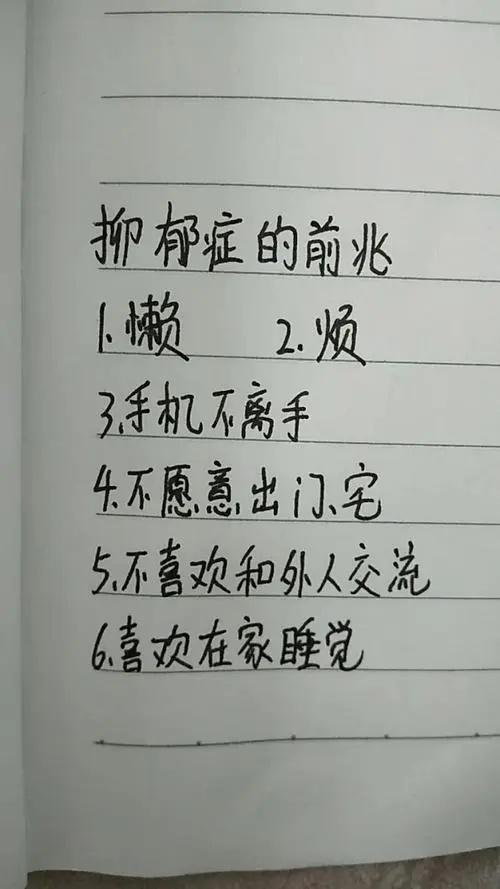 抑郁症的前兆
1.懒 2.烦
3.手机不离手
4.不愿意出门、宅
5.不喜欢和外人交流
6.喜欢在家睡觉